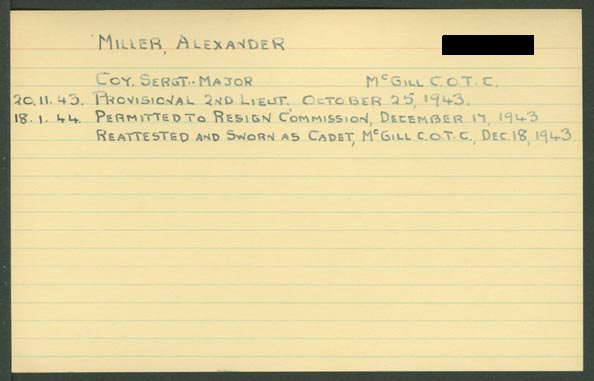 MILLER, ALEXANDER
COY. SERGT.-MAJOR McGILL C.O.T.C.
20.11.43. PROVISIONAL 2ND LIEUT, OCTOBER 25, 1943.
18.1.44. PERMITTED TO RESIGN COMMISSION, DECEMBER 17, 1943
REATTESTED AND SWORN AS CADET, McGILL C.O.T.C., DEC. 18, 1943